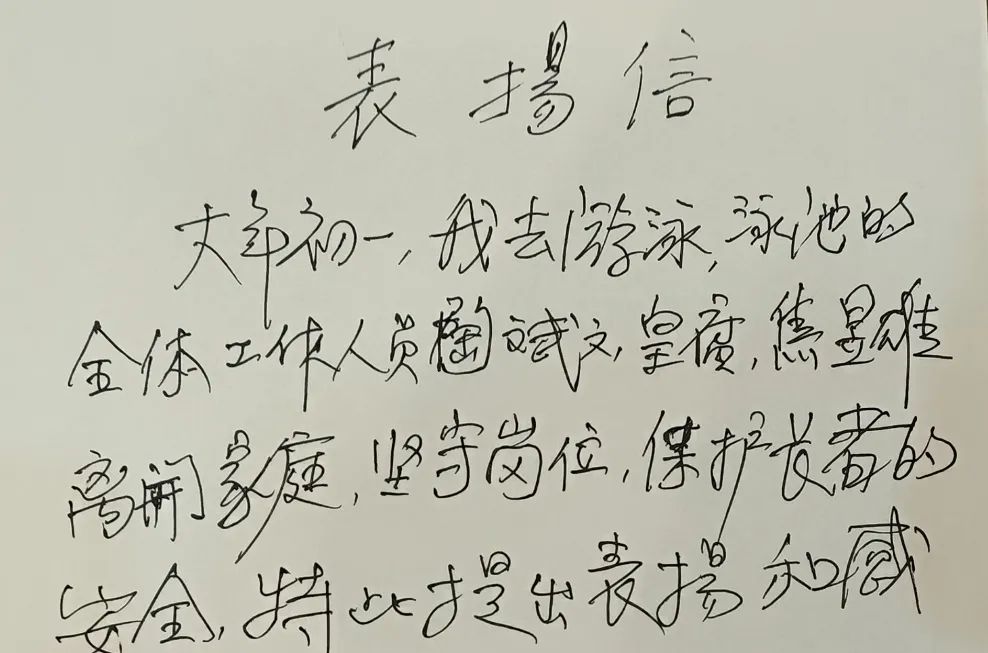 表揚信
大年初一,我去游泳,泳池的
全体工作人员陶斌文,皇度,焦显雄
离开家庭,坚守岗位,保护长者的
安全,特此提出表揚和感